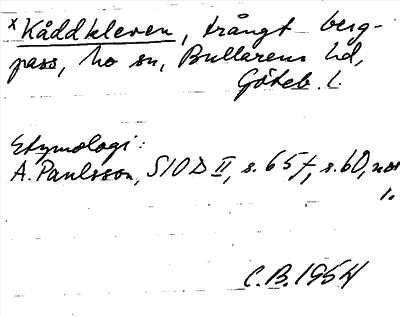 x Kåddkleven, trångt berg-
pass, Mo sn, Bullarens hd,
Göteb. l.
Etymologi:
A. Paulsson, SIOD II, s. 65 f, s. 60, not
1.
C.B. 1954